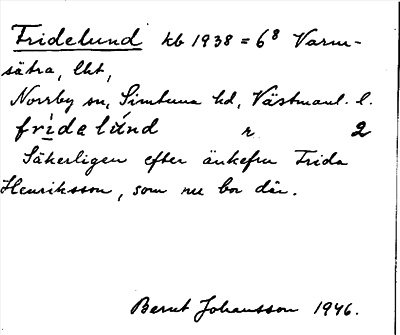 Fridelund kb 1938 = 6⁸ Varm-
sätra, lht,
Norrby sn, Simtuna hd, Västmanl. l.
fri̱delúnd r 2
Säkerligen efter änkefru Frida
Henriksson, som nu bor där.
Bernt Johansson 1946.